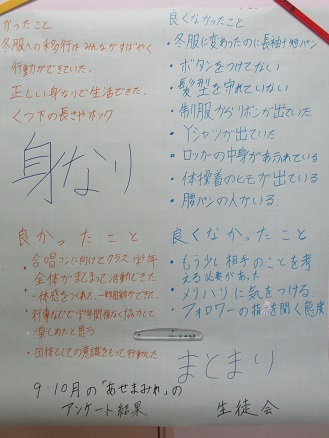 かったこと
冬服への移行はみんなすばやく
行動ができていた.
正しい身なりで生活できた.
くつ下の長さやホック
良くなかったこと
・冬服に変わったのに長袖+短パン
・ボタンをつけてない
・髪型を守れていない
・制服からリボンが出ていた
・Yシャツが出ていた
・ロッカーの中身があふれている
・体操着のヒモが出ている
・腰パンの人がいる
身なり
良かったこと
・合唱コンに向けてクラス、学年
全体がまとまって活動できた.
・一体感をつくれた、一致団結ができた.
・行事などで学年関係なく協力して
楽しめたと思う
・団体としての意識をもって行動した
良くなかったこと
・もう少し相手のことを考
える必要があった
・メリハリに気をつける
・フォロワーの指示を聞く態度
まとまり
9・10月の「あせまみれ」の
アンケート結果
生徒会